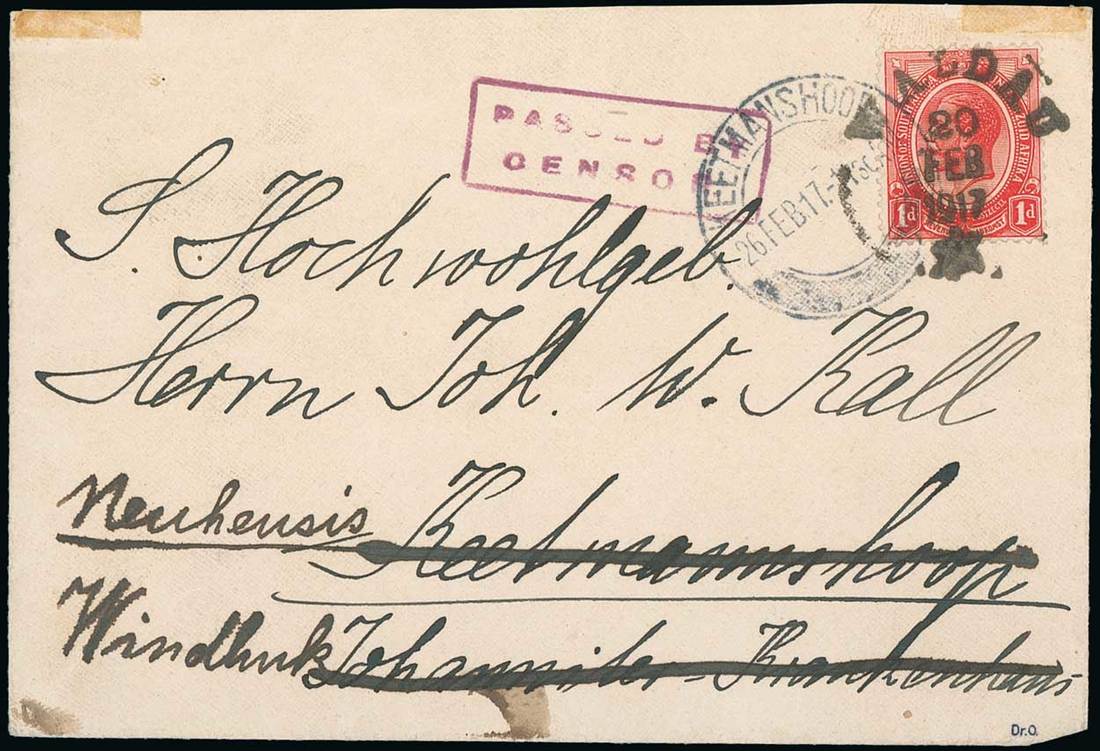 PASSED BY
CENSOR
KEETMANSHOOP
26 FEB 17
MALDAU
20
FEB
1917
UNION OF SOUTH AFRICA
ZUID AFRIKA
1d 1d
S. Hochwohlgeb.
Herrn Joh. W. Kall
Neuheusis
Keetmannshoop
Windhuk
Johanniter-Krankenhaus
Dr.O.